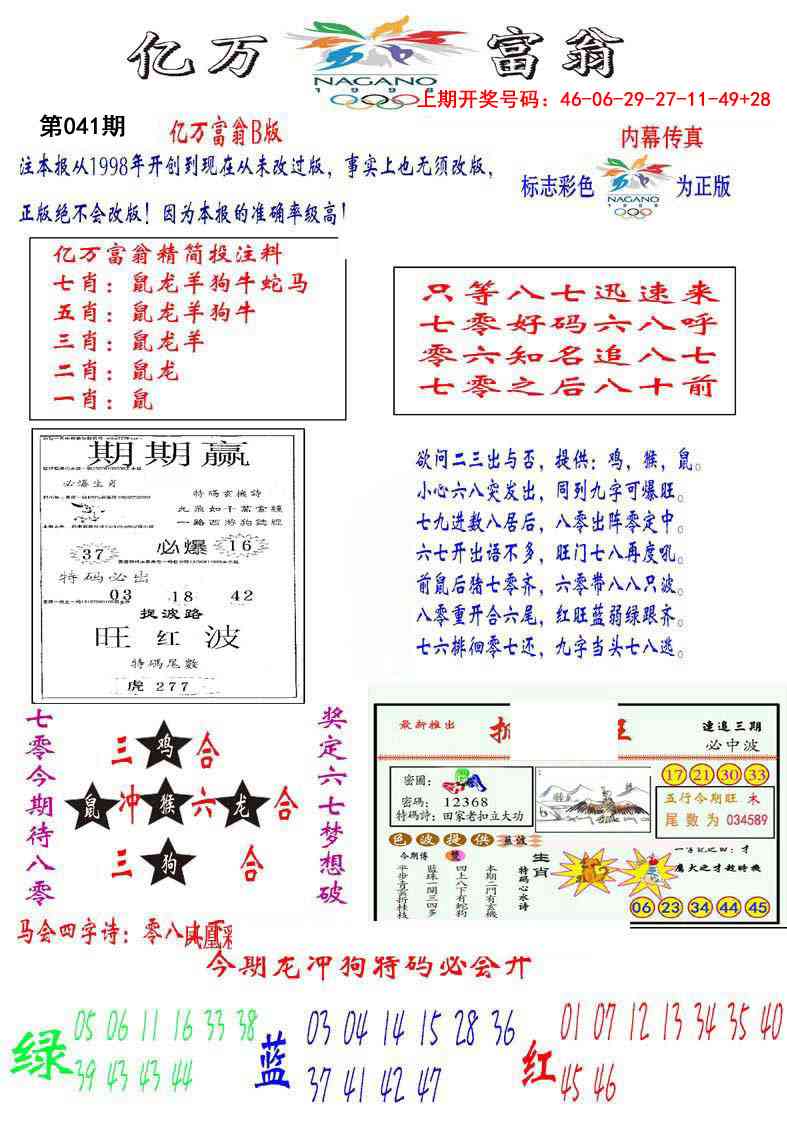 亿万富翁
NAGANO
1998
上期开奖号码：46-06-29-27-11-49+28
第041期
亿万富翁B版
内幕传真
注本报从1998年开创到现在从未改过版，事实上也无须改版，
正版绝不会改版！因为本报的准确率级高！
标志彩色
NAGANO
1998
为正版
亿万富翁精简投注料
七肖：鼠龙羊狗牛蛇马
五肖：鼠龙羊狗牛
三肖：鼠龙羊
二肖：鼠龙
一肖：鼠
只等八七迅速来
七零好码六八呼
零六知名追八七
七零之后八十前
期期赢
必爆生肖
特码玄機詩
九飛如千萬當纏
一路西游狗鼠經
37
必爆
16
特码必出
03 18 42
捉波路
旺红波
特码尾數
虎277
欲问二三出与否，提供：鸡，猴，鼠。
小心六八突发出，同列九字可爆旺。
七九进数八居后，八零出阵零定中。
六七开出语不多，旺门七八再度吼。
前鼠后猪七零齐，六零带八八只波。
八零重开合六尾，红旺蓝弱绿跟齐。
七六排徊零七还，九字当头七八逃。
七零今期待八零
三鸡合
鼠冲猴六龙合
三狗合
奖定六七梦想破
最新推出
速追三期
必中波
密圖：
密碼：12368
特碼詩：田家老扣立大功
17 21 30 33
五行今期旺 木
尾数为 034589
色波提供 藍波
今期傳
雙
平步青雲折桂枝
藍珠一開三四多
四上八下有蛇狗
本期二門有玄機
特碼心水诗
生肖
鷹犬之才趁時機
06 23 34 44 45
马会四字诗：零八
今期龙冲狗特码必会开
绿
05 06 11 16 33 38
39 43 43 44
蓝
03 04 14 15 28 36
37 41 42 47
红
01 07 12 13 34 35 40
45 46